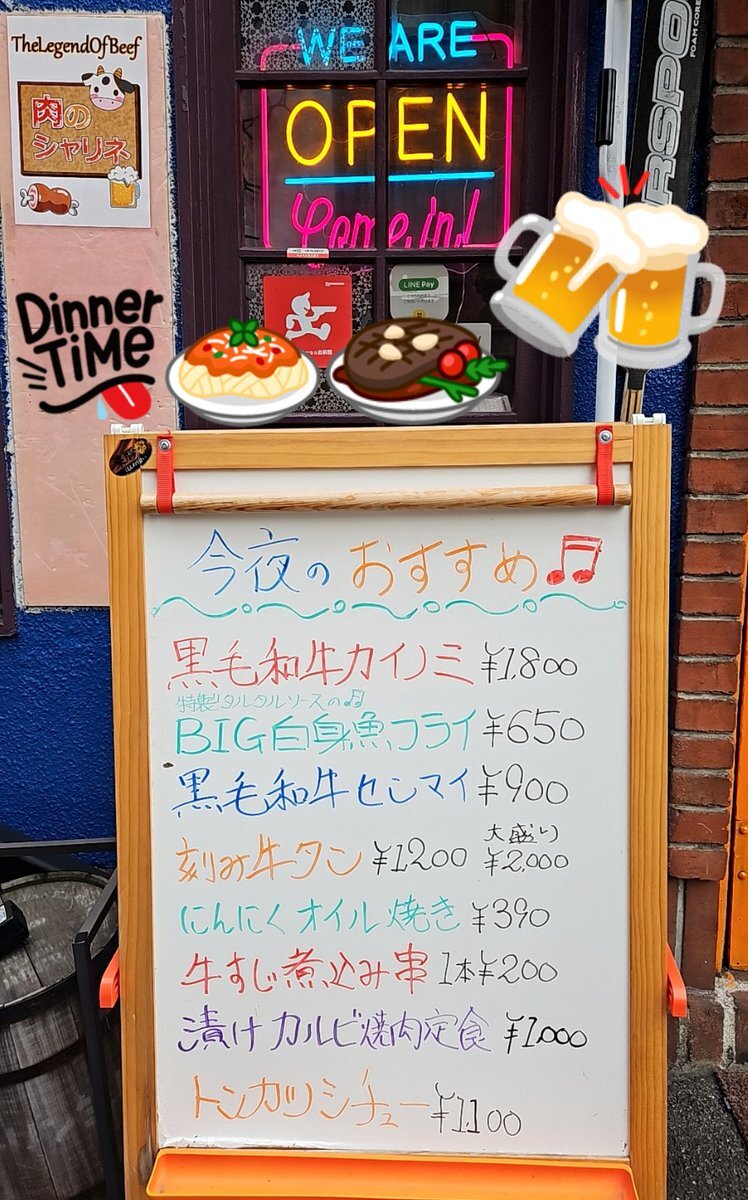 TheLegendOfBeef
肉の
シャリネ
WE ARE
OPEN
Come in!
RSPO
FOAM CORE
LINE Pay
Dinner
TiME
今夜のおすすめ
黒毛和牛カイノミ ¥1,800
特製タルタルソースの
BIG白身魚フライ ¥650
黒毛和牛センマイ ¥900
刻み牛タン ¥1200 大盛り ¥2,000
にんにくオイル焼き ¥390
牛すじ煮込み串 1本¥200
漬けカルビ焼肉定食 ¥1,000
トンカツシチュー ¥1,100